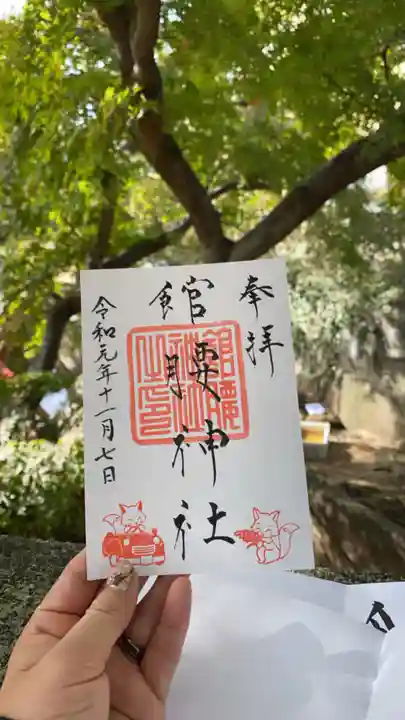 奉拝
館腰神社
館腰神社之印
令和元年十一月七日